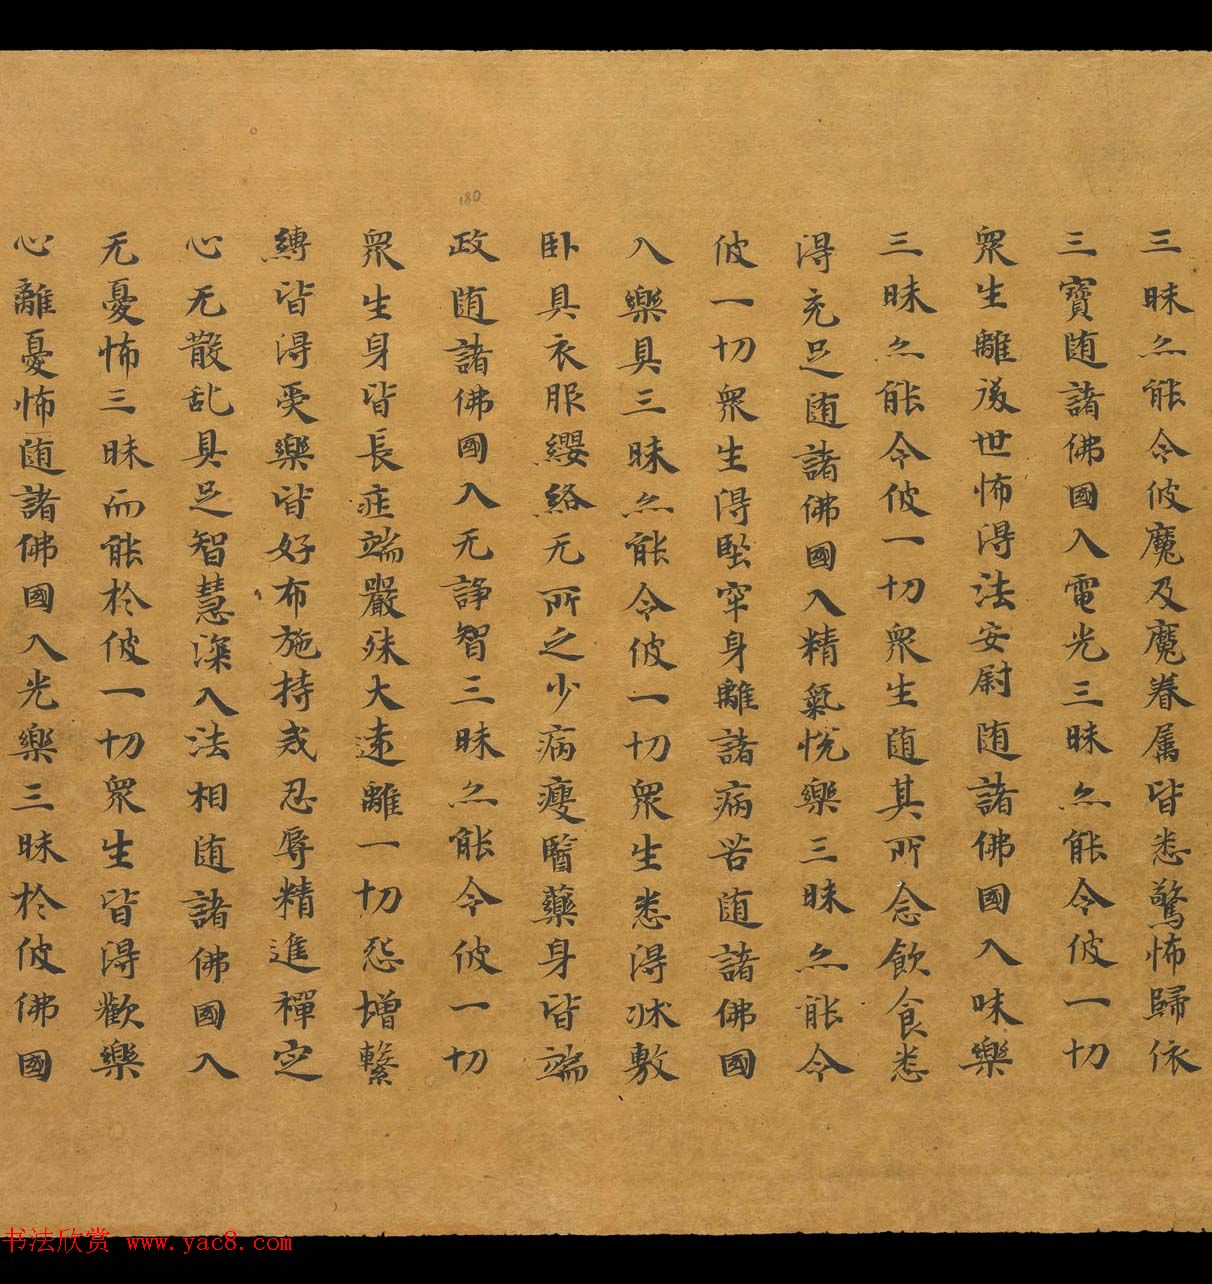 三昧亦能令彼魔及魔眷属皆悉驚怖歸依
三寶随諸佛國入電光三昧亦能令彼一切
衆生離後世怖得法安尉随諸佛國入味樂
三昧亦能令彼一切衆生随其所念飲食悉
得充足随諸佛國入精氣悅樂三昧亦能令
彼一切衆生得堅牢身離諸病苦随諸佛國
入樂具三昧亦能令彼一切衆生悉得牀敷
卧具衣服纓絡无所乏少病瘦醫藥身皆端
政随諸佛國入无諍智三昧亦能令彼一切
衆生身皆長疰端嚴殊大遠離一切怨憎繫
縛皆得受樂皆好布施持戒忍辱精進禪定
心无散乱具足智慧深入法相随諸佛國入
无憂怖三昧而能於彼一切衆生皆得歡樂
心離憂怖随諸佛國入光樂三昧於彼佛國
180
书法欣赏 www.yac8.com